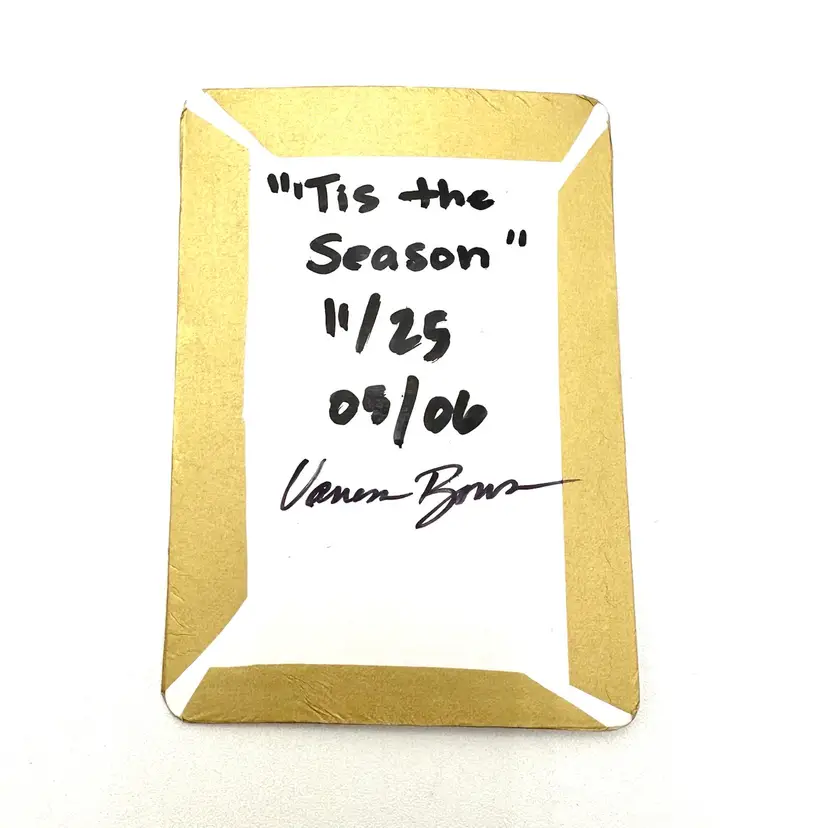 "'Tis the
Season"
11/25
05/06
Vanessa